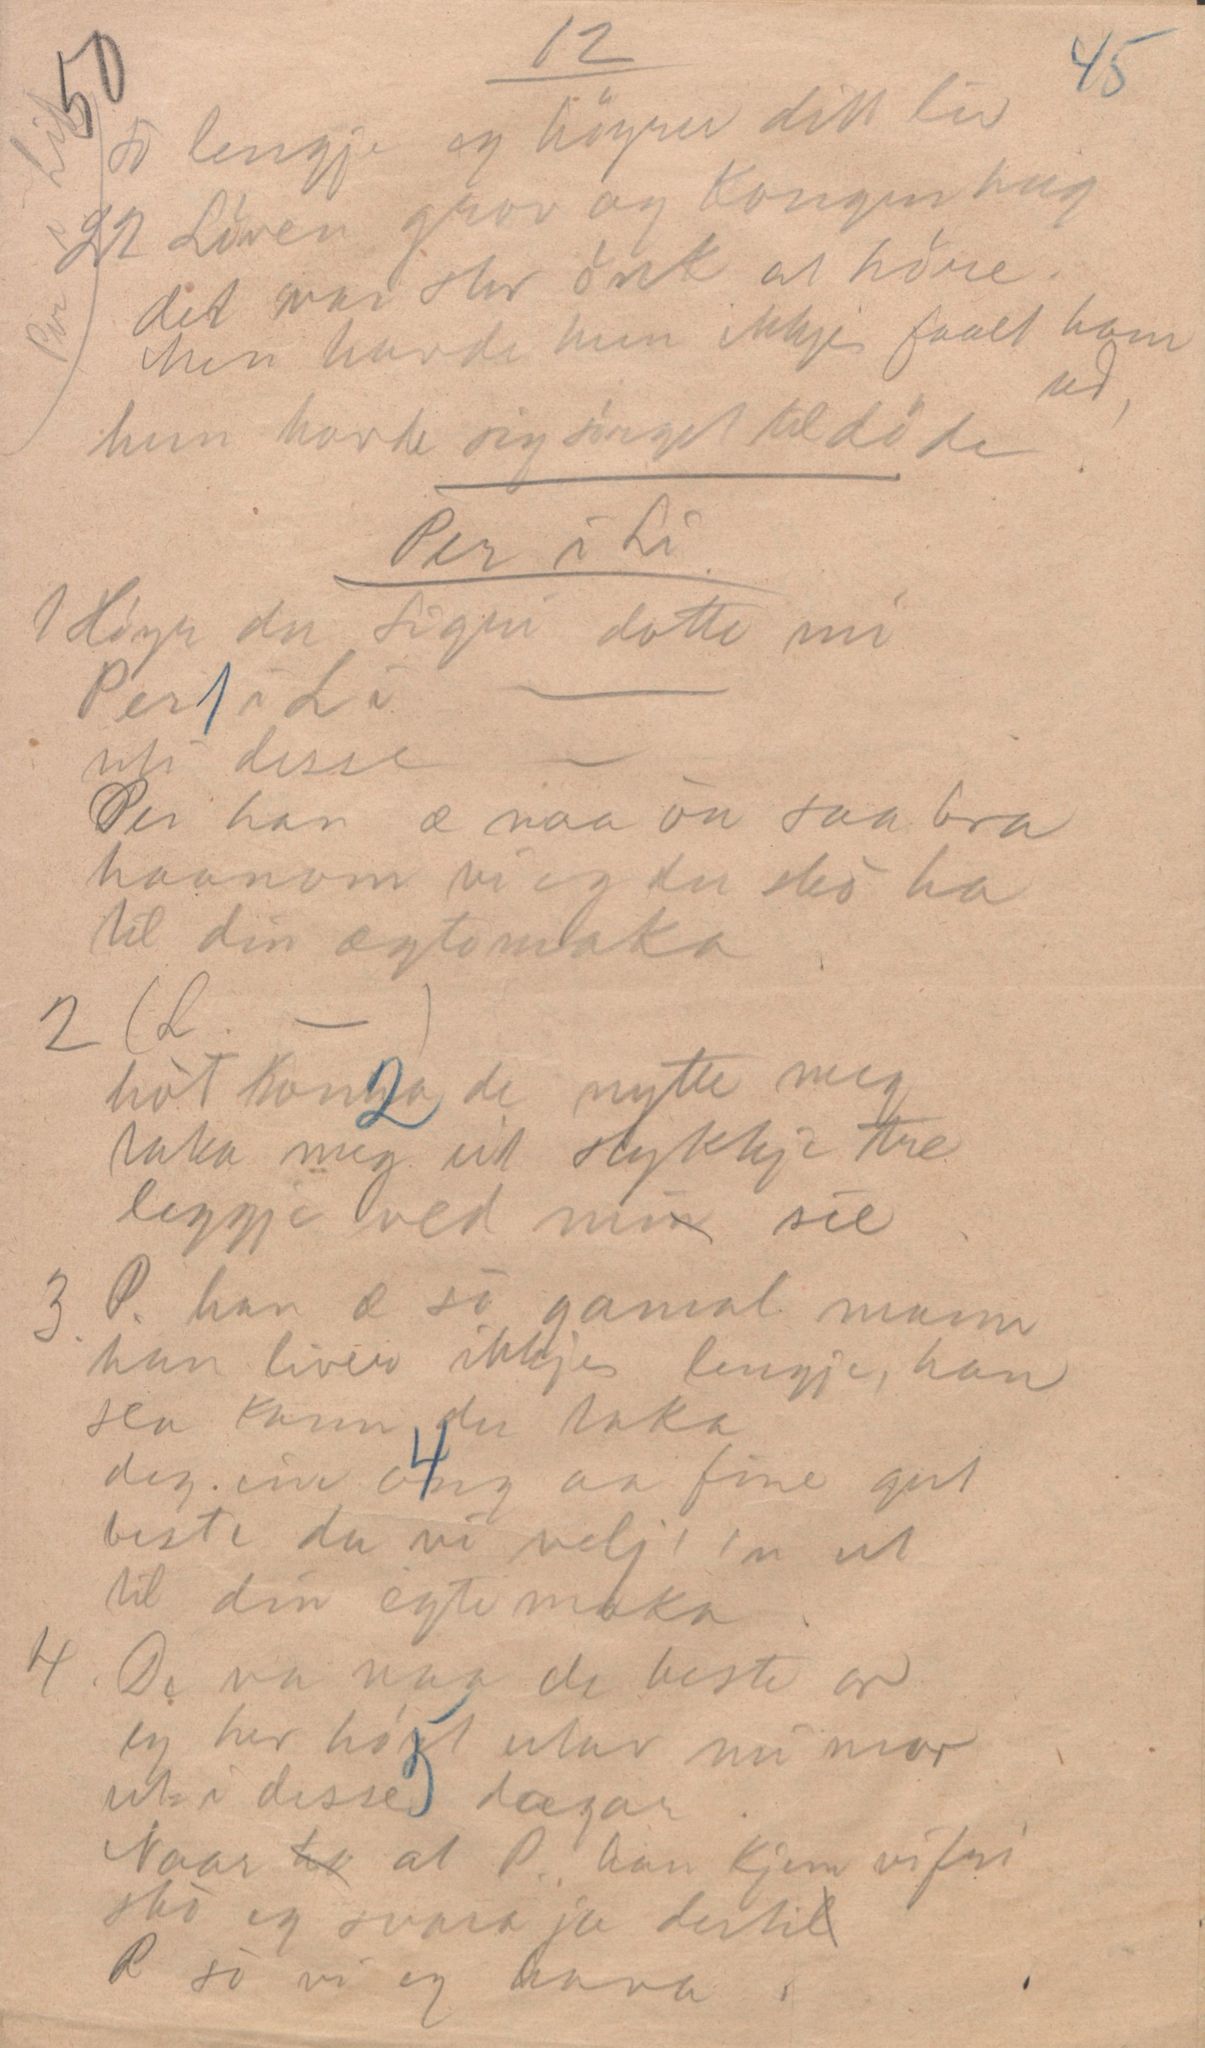 12
45
50
Per i Li
så lengje eg höyrer ditt liv
22 Löven grov og Kongen hug
det var stor önk at höre.
Men havde hun ikkje faaet ham
ud,
hun havde sig sörget til döde
Per i Li
1 Höyr du Sigri dotte mi
Per i Li
1
uti disse
Per han æ naa ōn saa bra
haanom vi eg du skō ha
til din ægtemaka
2 (L. — )
hōt Konna de nytte meg
2
taka meg eit stykkje tre
leggje ved min sie
3. P. han æ sō gamal mann
han liver ikkje lengje, han
sea kann du taka
deg ein ong aa fine gut
4
beste du vi velj' 'n ut
til din egtemaka
4. De va naa de beste or
eg her höyrt utav mi mor
5
uti disse dægar
Naar at P. han kjem vi fri
skō eg svara ja dertil
P. sō vi eg hava.